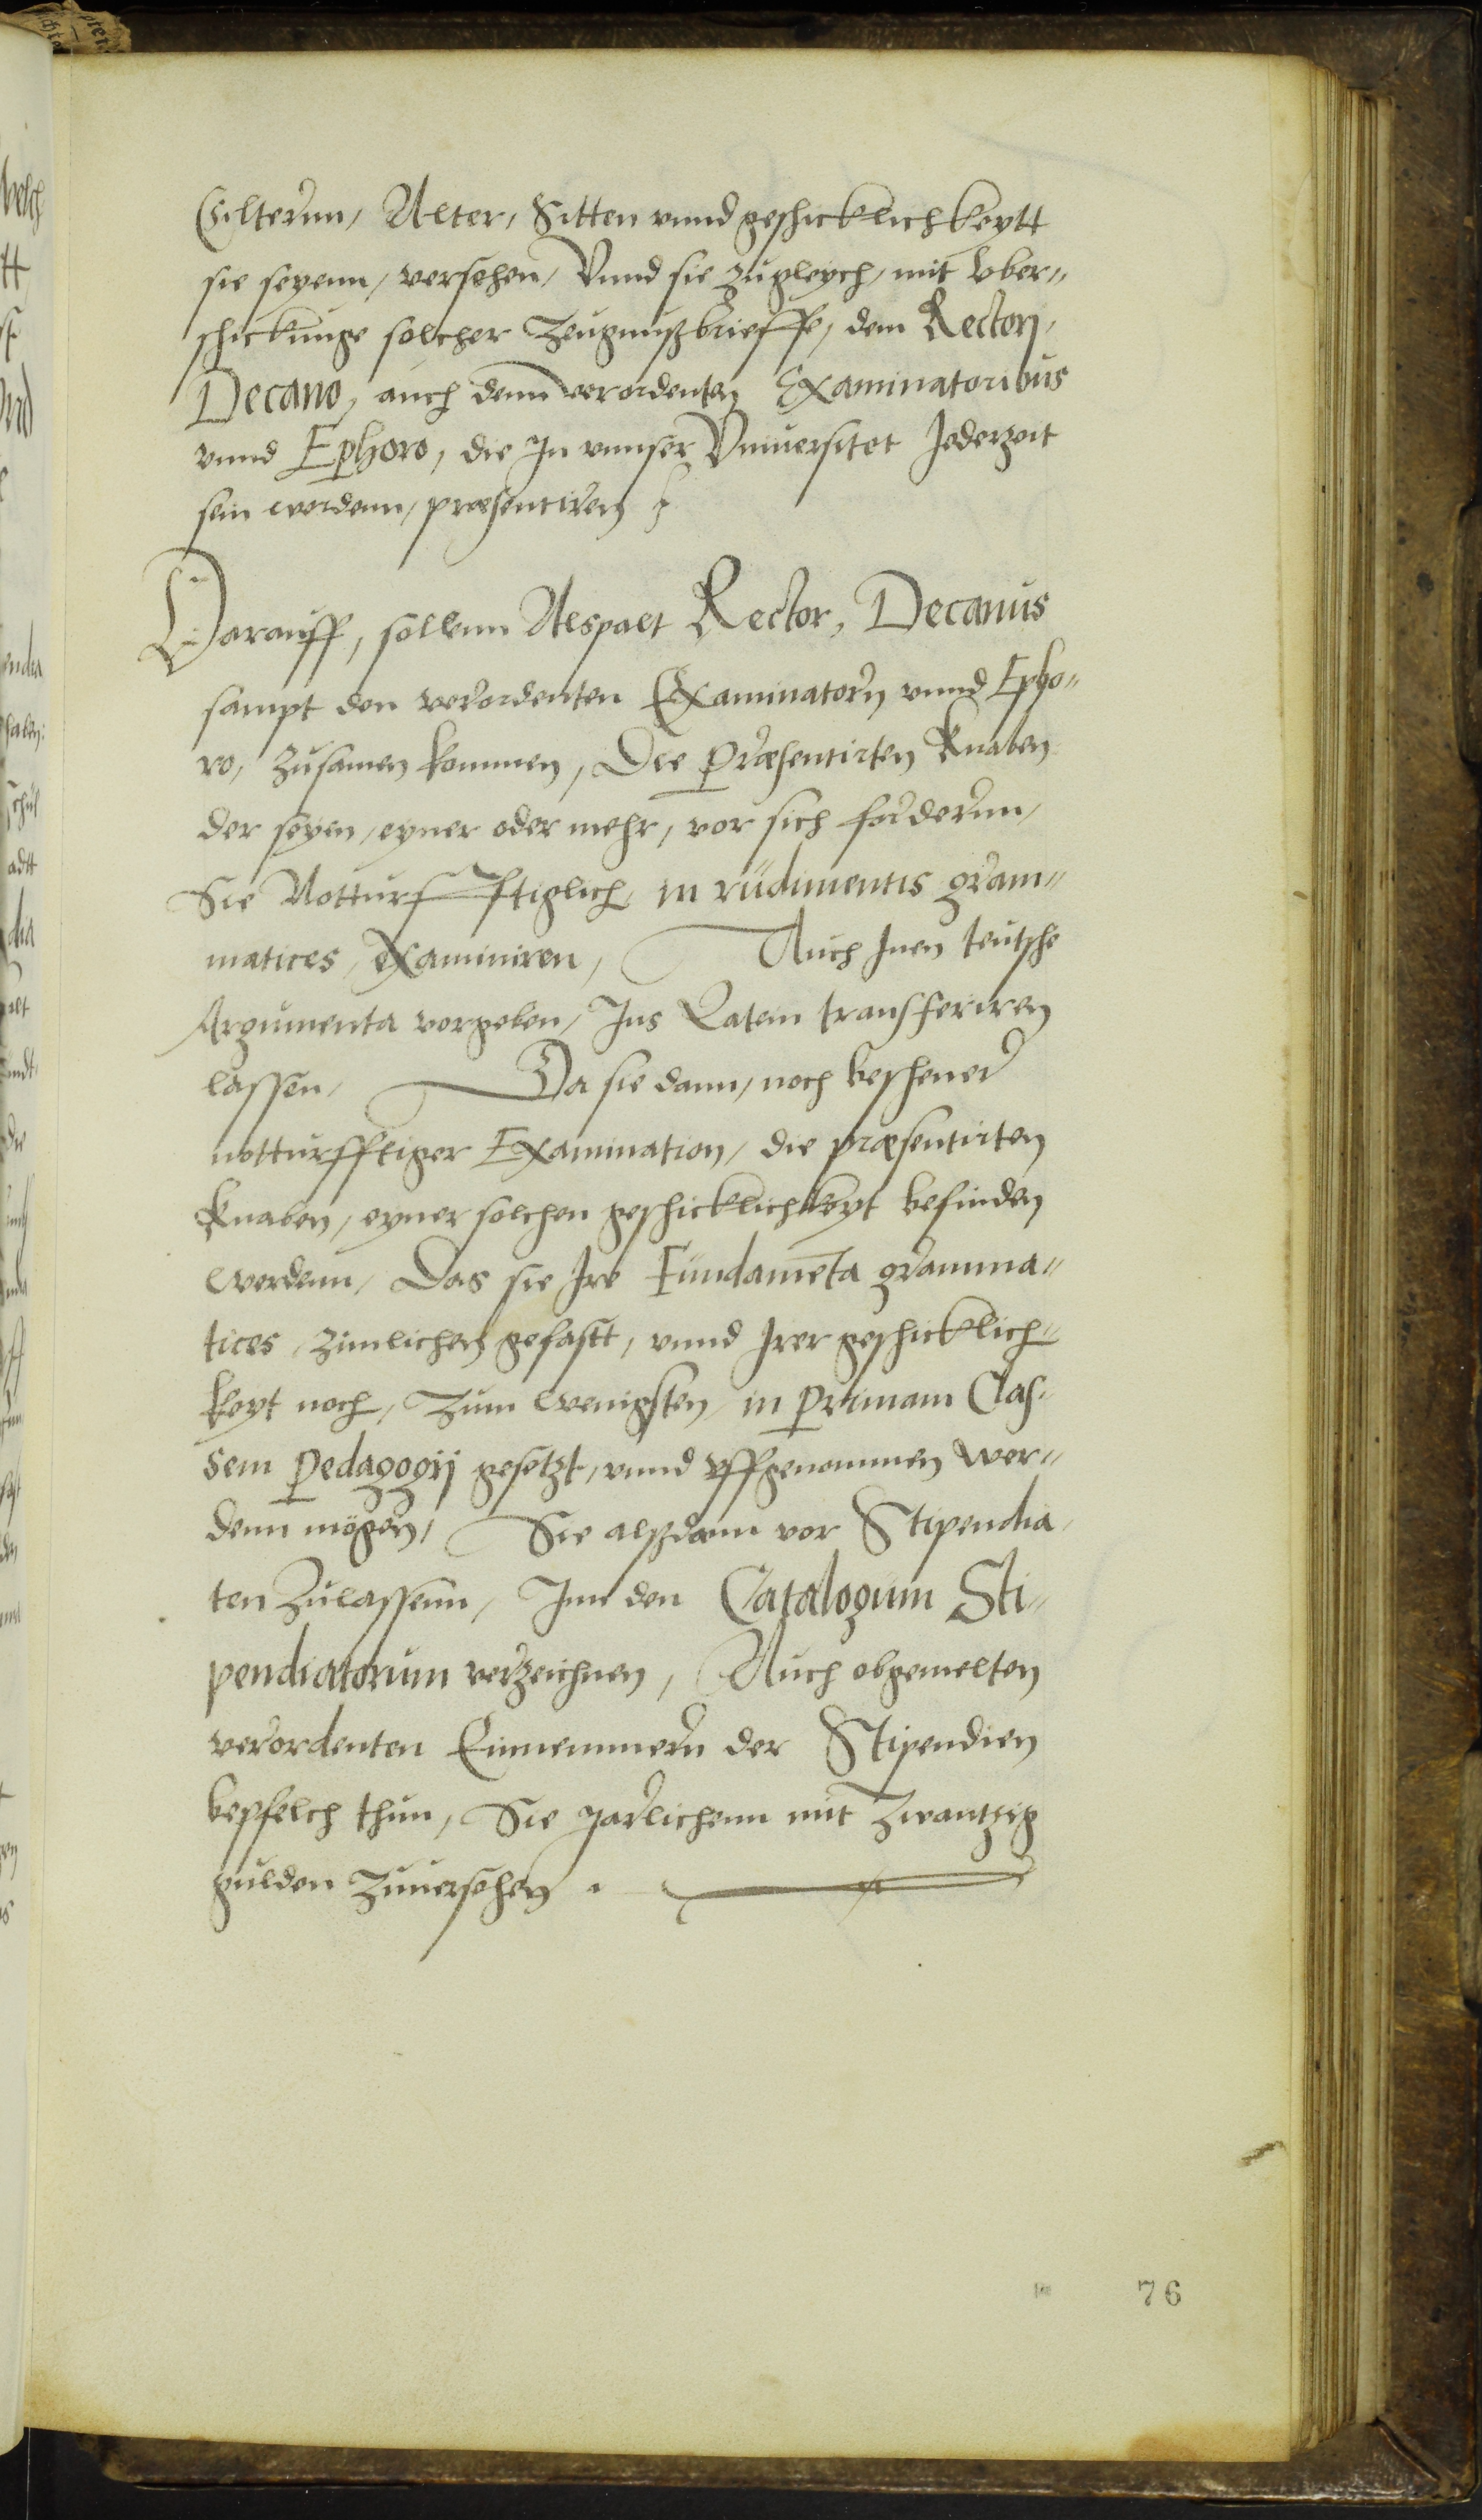 Eilternn, Alter, Sitten vnnd geschicklichkeytt
sie seyenn, versehen, Vnnd sie zugleych, mit vber„
schickunge solcher Zeugnußbrieffe, dem Rectori,
Decano, auch denn verordenten Examinatoribus
vnnd Ephoro, die In vnnser Vniuersitet Jederzeit
sein werdenn, præsentiren
Darauff, sollenn Alspalt Rector, Decanus
sampt den verordenten Examinatorn vnnd Epho„
ro, zusamen kommen, Die Præsentirten Knaben
der seyen, eyner oder mehr, vor sich fordernn,
Sie Notturfftiglich, in rudimentis gram„
matices, examiniren, Auch Inen teutsche
Argumenta vorgeben, Ins Latein transferiren
lassen, Da sie dann, noch beschener
notturfftiger Examination, die præsentirten
Knaben, eyner solchen geschicklichkeyt befinden
werdenn, Das sie Ire Fundamēta gramma„
tices, zimlichen gefastt, vnnd Irer geschicklich„
keyt noch, Zum wenigsten, in primam Clas„
sem Pedagogij gesetzt, vnnd vffgenommen wer„
denn mögen, Sie alßdann vor Stipendia„
ten Zulassenn, Inn den Catalogum Sti„
pendiatorum verzeichnen, Auch obgemelten
verordenten Einnemmern der Stipendien
bepfelch thun, Sie Jarlichenn mit Zwantzig
gulden Zuuersehen.
76